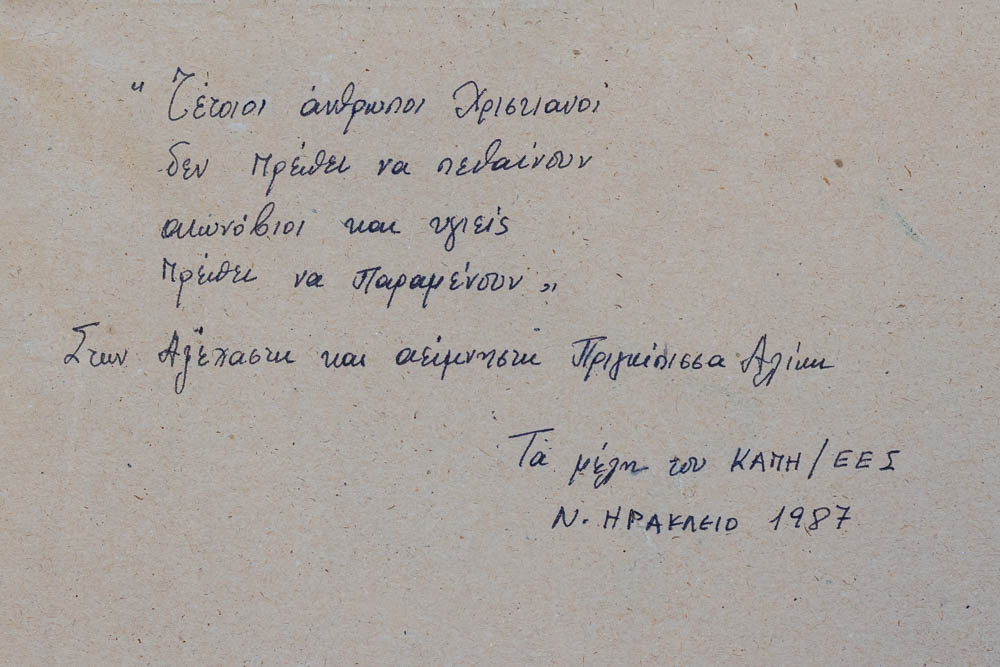 " Τέτοιοι άνθρωποι Χριστιανοί
δεν πρέπει να πεθαίνουν
αιωνόβιοι και υγιείς
πρέπει να Παραμένουν „
Στην Αξέχαστη και αείμνηστη Πριγκίπισσα Αλίκη
Τα μέλη του ΚΑΠΗ/ΕΕΣ
Ν. ΗΡΑΚΛΕΙΟ 1987